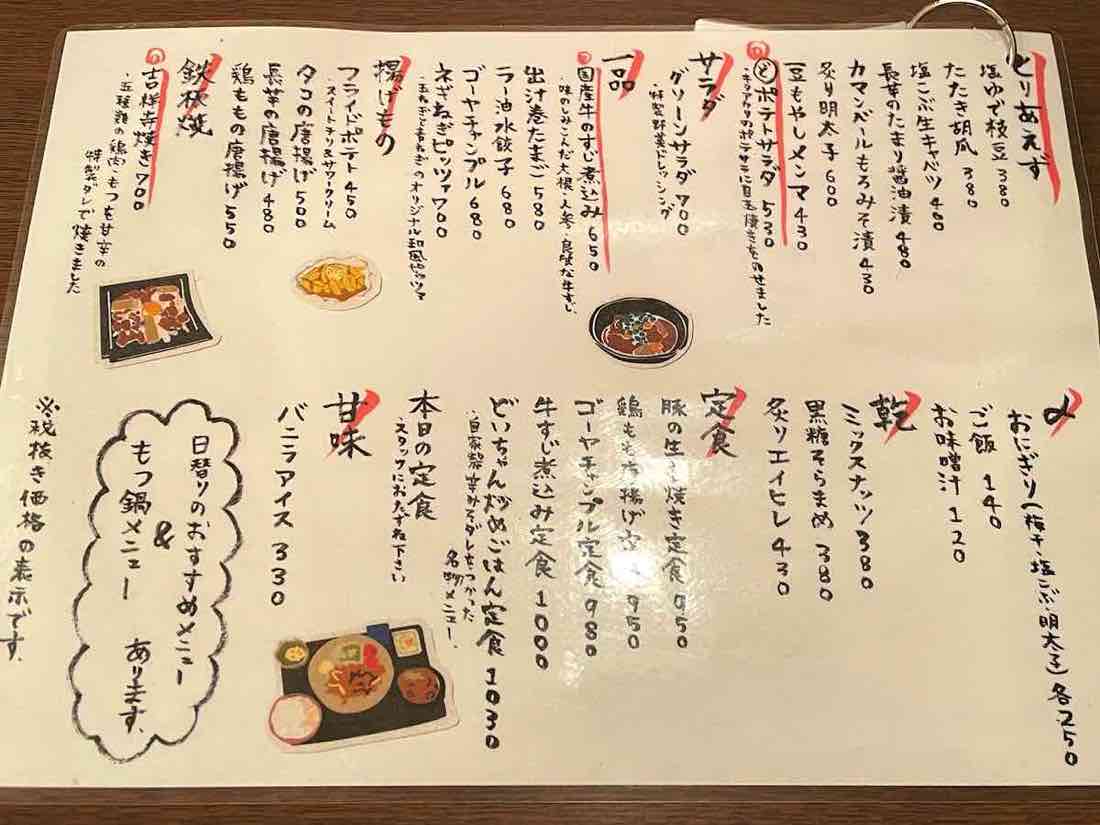 とりあえず
塩ゆで枝豆 380
たたき胡瓜 380
塩こぶ生キャベツ 480
長芋のたまり醤油漬 480
カマンベールもろみそ漬 430
炙り明太子 600
豆もやしメンマ 430
ポテトサラダ 530
サラダ
グリーンサラダ 700
・特製野菜ドレッシング
一品
国産牛のすじ煮込み 650
・味のしみこんだ大根、人参、良質な牛すじ、
出汁巻たまご 580
ラー油水餃子 680
ゴーヤチャンプル 680
ネギねぎピッツァ 700
・玉ねぎと青ねぎのオリジナル和風ピッツァ
揚げもの
フライドポテト 450
・スイートチリ&サワークリーム
タコの唐揚げ 500
長芋の唐揚げ 480
鶏ももの唐揚げ 550
鉄板焼
吉祥寺焼き 700
・五種類の鶏肉、もつを甘辛の
特製ダレで焼きました
〆
おにぎり(梅干、塩こぶ、明太子) 各250
ご飯 140
お味噌汁 120
乾
ミックスナッツ 380
黒糖そらまめ 380
炙りエイヒレ 430
定食
豚の生 焼き定食 950
鶏もも 揚げ定 950
ゴーヤチャンプル定食 980
牛すじ煮込み定食 1000
どいちゃん炒めごはん定食 1030
・自家製辛みそダレをつかった
名物メニュー
本日の定食
・スタッフにおたずね下さい
甘味
バニラアイス 330
日替りのおすすめメニュー
&
もつ鍋メニュー あります。
※税抜き価格の表示です。